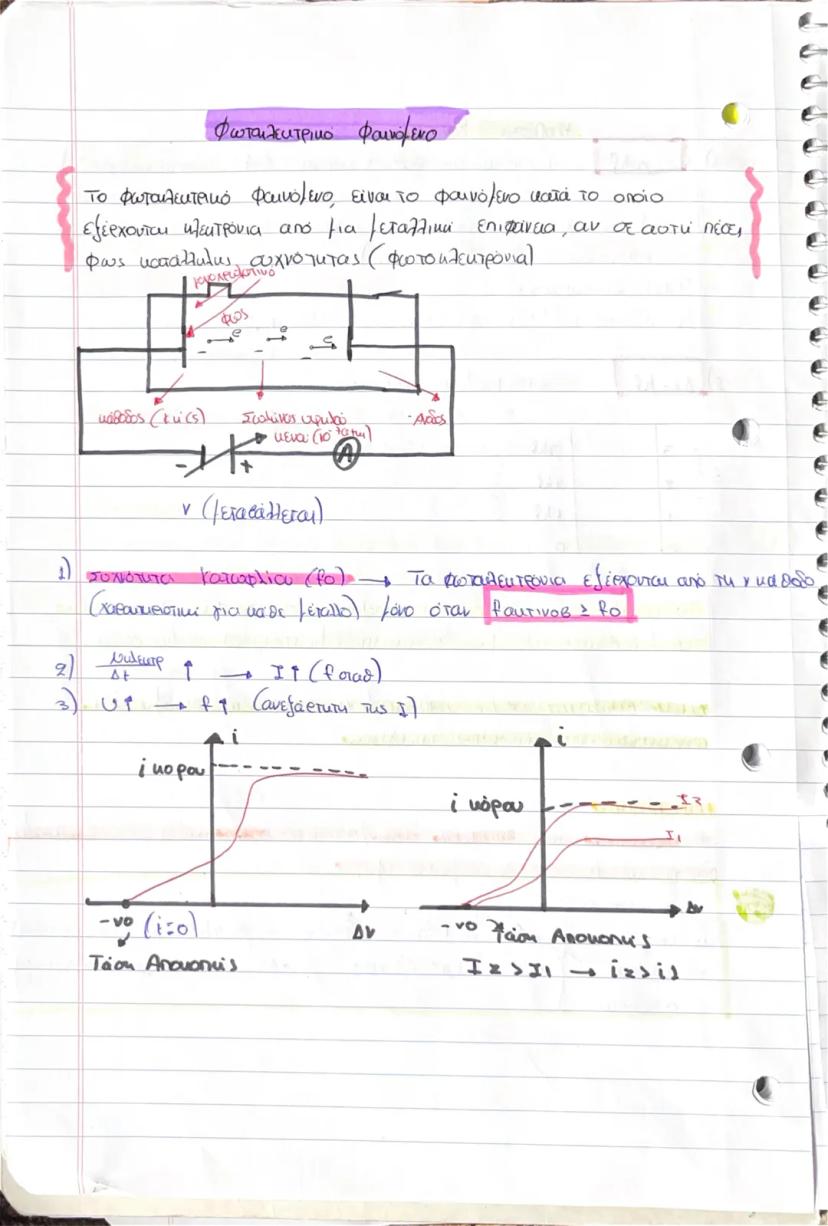 Φωτοηλεκτρικό Φαινόμενο
Το Φωτοηλεκτρικό Φαινόμενο, είναι το φαινόμενο κατά το οποίο
εξέρχονται ηλεκτρόνια από μια μεταλλική επιφάνεια, αν σε αυτή πέσει
φως κατάλληλης συχνότητας (φωτοηλεκτρόνια)
φως
e e e
- - -
κάθοδος
Σωλήνας υψηλού
κενού
- Άνοδος
- + A
V (μεταβάλλεται)
1) Συχνότητα Κατωφλίου (fo) → Τα φωτοηλεκτρόνια εξέρχονται από την κάθοδο
(χαρακτηριστική για κάθε μέταλλο) μόνο όταν fακτινοβ ≥ fo
2) Δt ↑ → I↑ (f σταθ)
3) U↑ → f↑ (ανεξάρτητη της I)
i i
i κορου
i κόρου I2
I1
-vo (i=0) Δv -vo Τάση Αποκοπής Δv
Τάση Αποκοπής I2 > I1 → i2 > i1